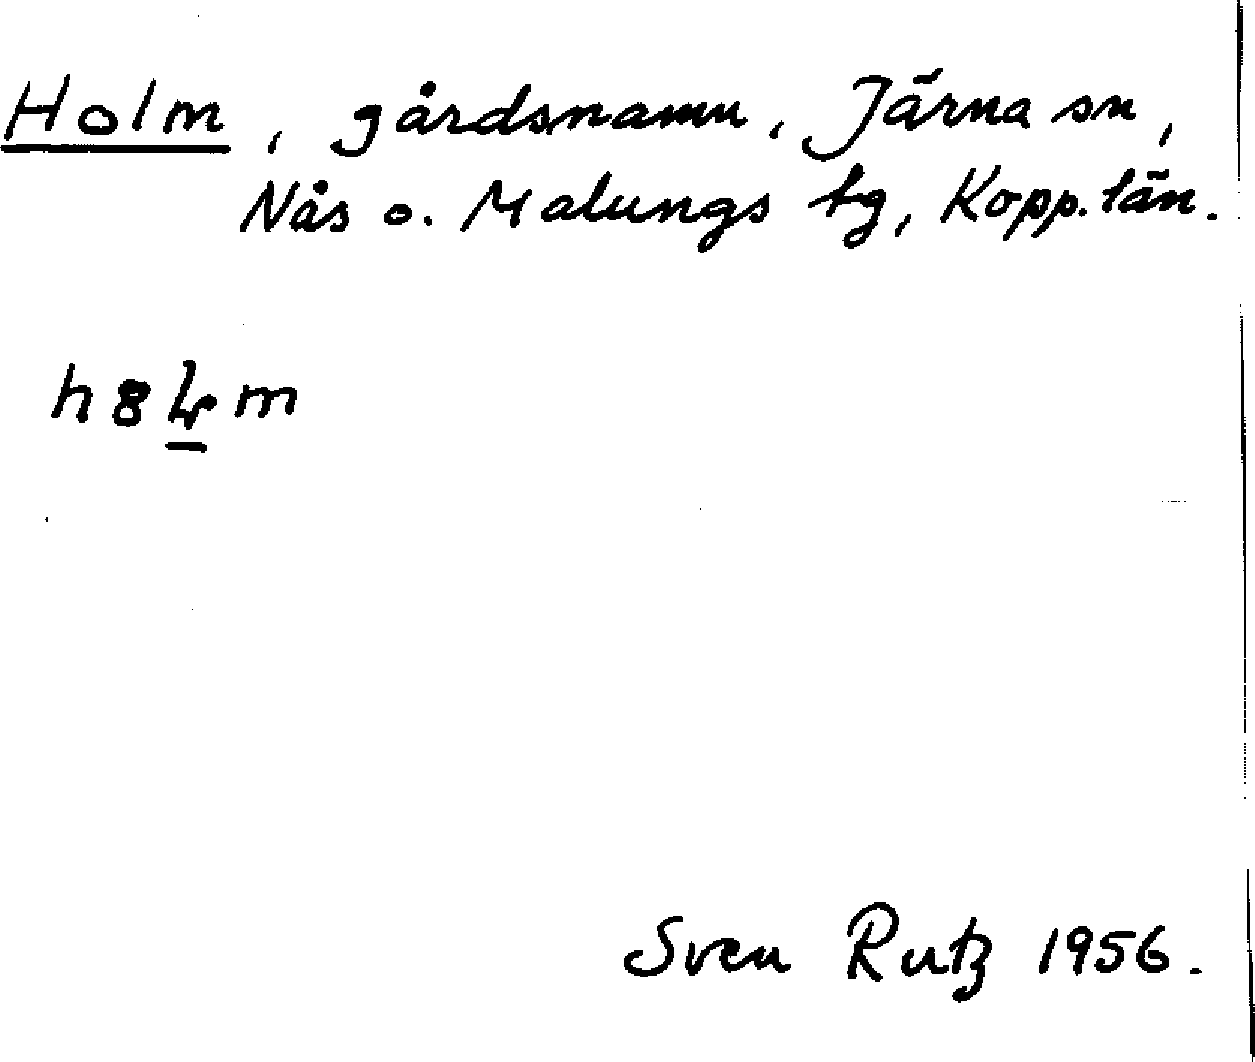 Holm, gårdsnamn, Järna sn,
Nås o. Malungs tg, Kopp. län.
h8lm
Sven Rutz 1956.